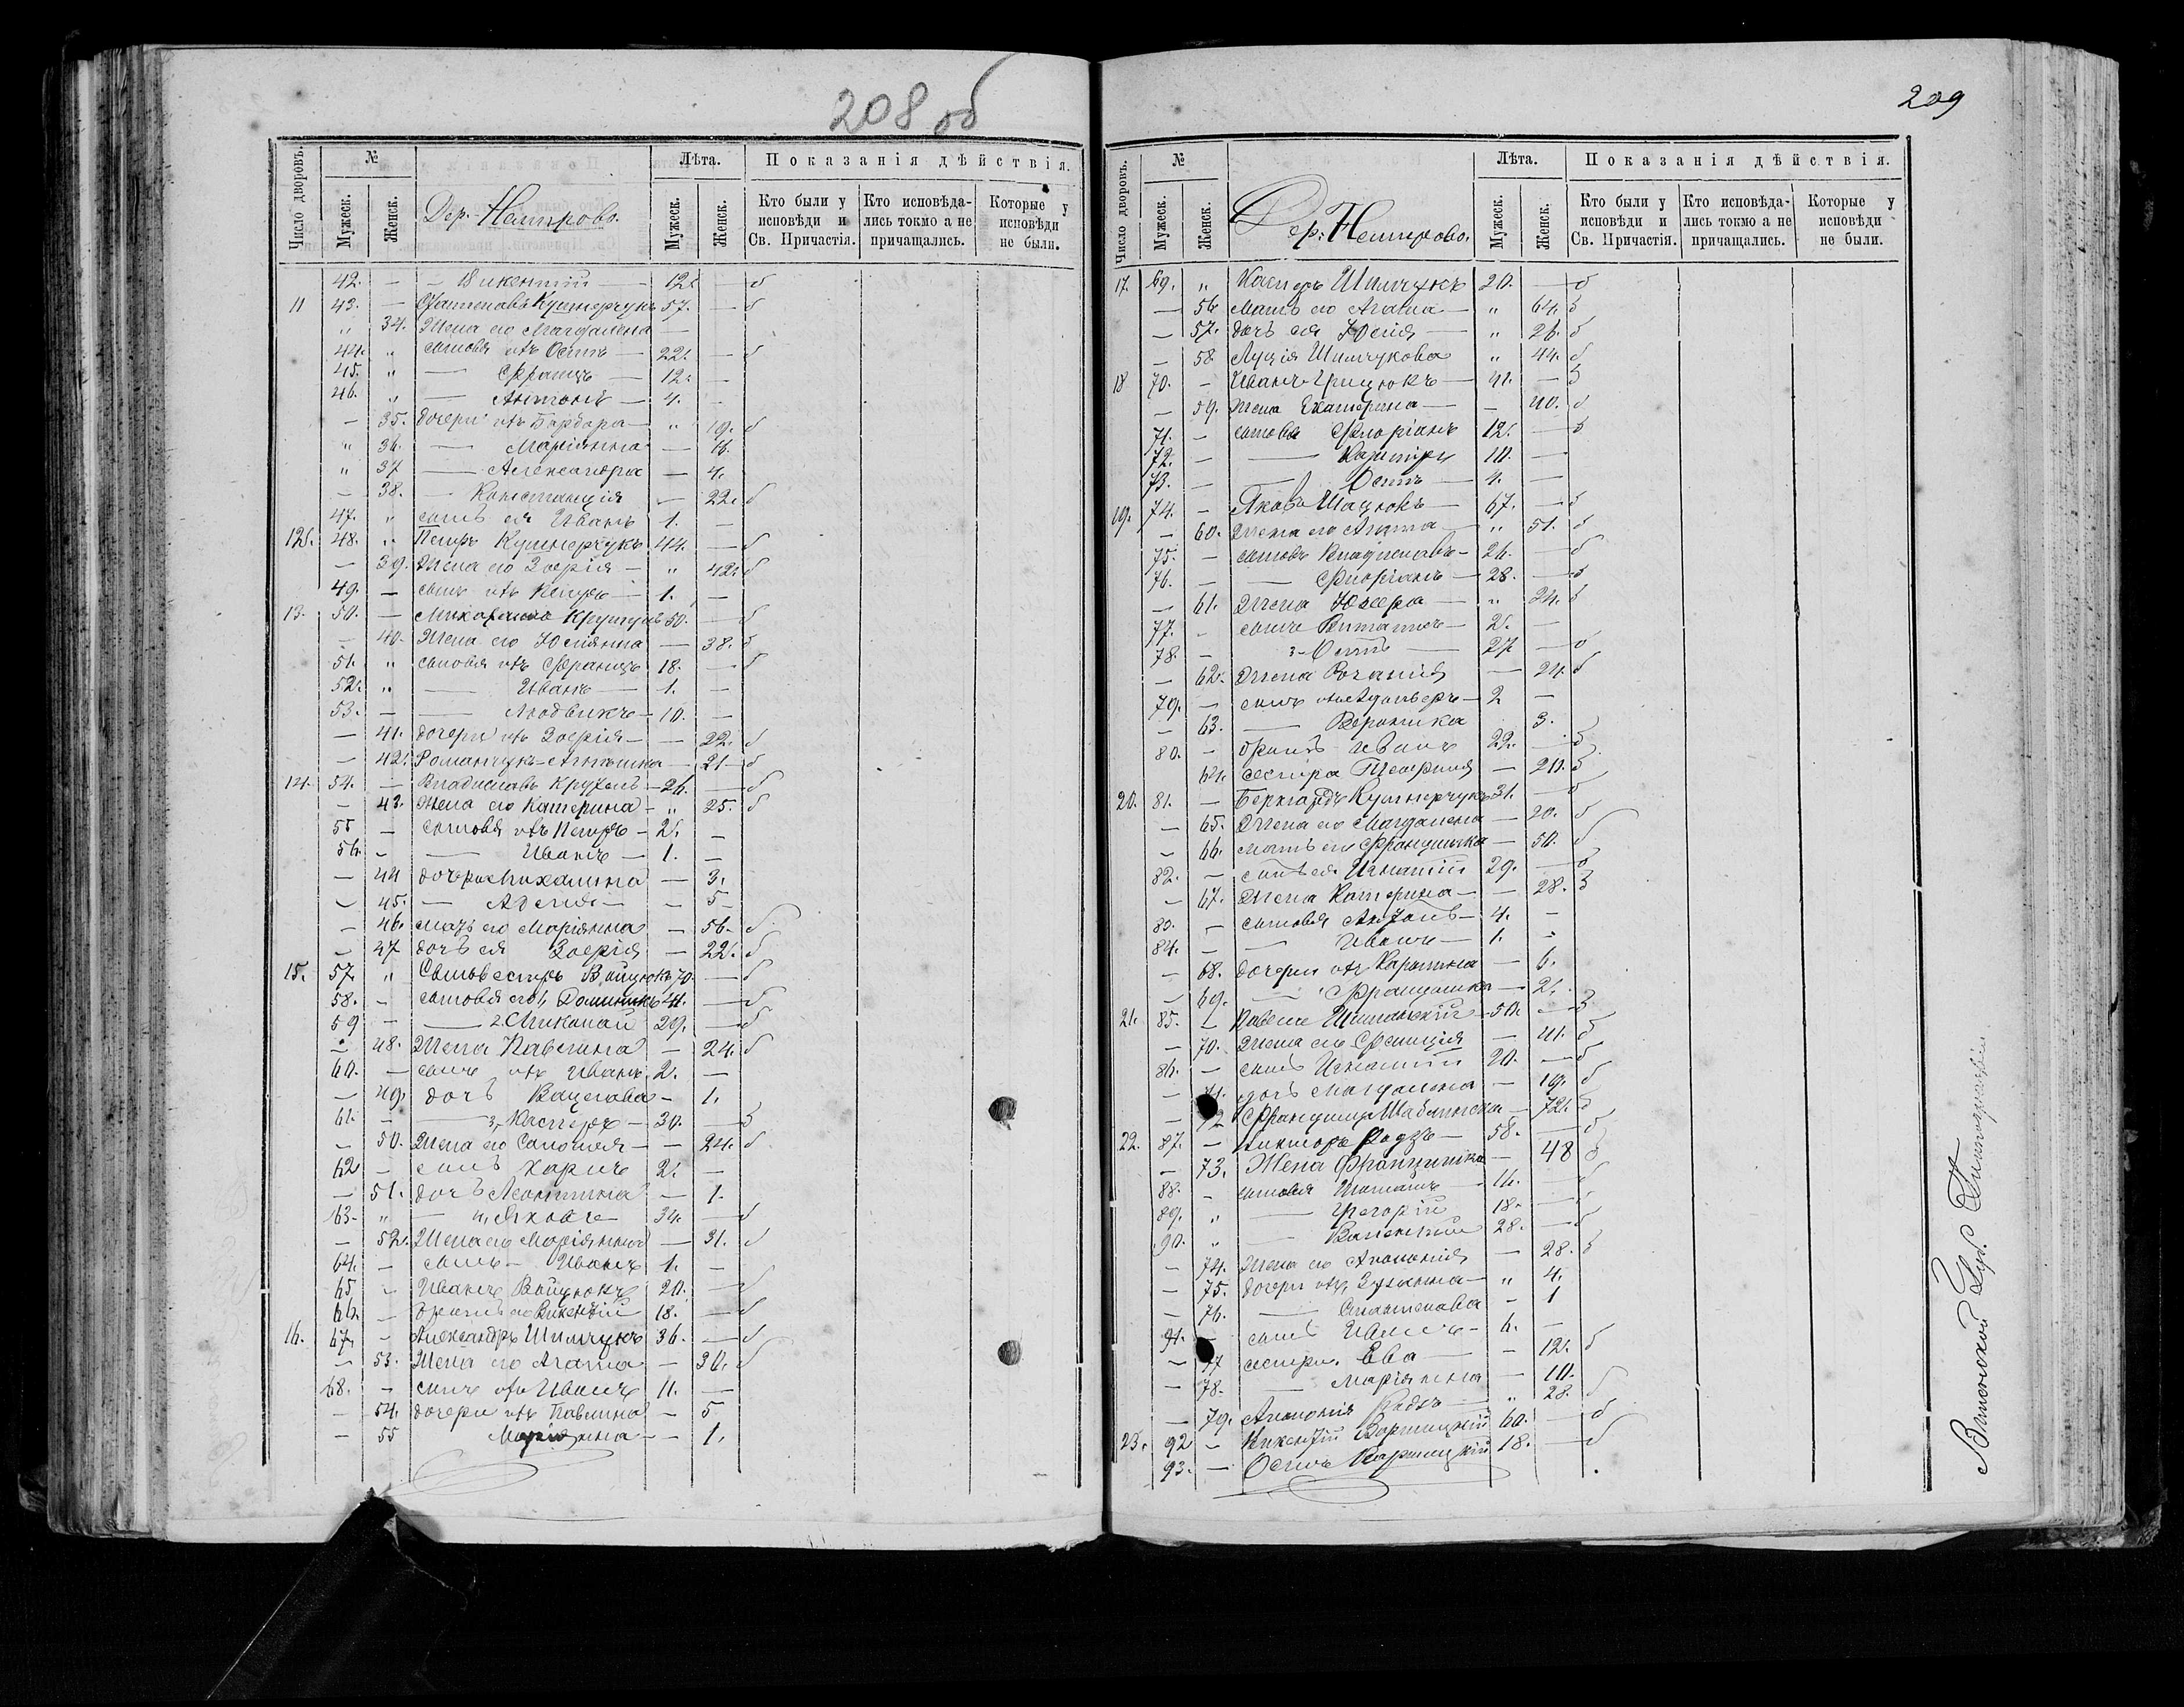 208 об
Число дворовъ. № Лѣта. Показанія дѣйствія.
Мужеск. Женск. Дер. Нетрово. Мужеск. Женск. Кто были у исповѣди и Св. Причастія. Кто исповѣда-лись токмо а не причащались. Которые у исповѣди не были.
42. — — Викентій — 12 — б
11 43. — Станиславъ Кушнерчукъ 57. — б
„ 34. Жена его Магдалена —
44. „ сыновья ихъ Осипъ — 22. — б
45. „ — Францъ — 12. —
46. „ — Антонъ — 4. —
— 35. дочери ихъ Барбара — „ 19. б
„ 36. — Маріянна — 16.
„ 37 — Александра — 4.
— 38. — Констанція — 22. б
47. „ сынъ ея Иванъ 1. —
12. 48. „ Петръ Кушнерчукъ 44. — б
— 39. Жена его Зофія — „ 42. б
49. — сынъ ихъ Петръ — 1. —
13. 50. — 50. — б
— 40. Жена его Юліянна — 38. б
51. „ сыновья ихъ Францъ 18. — б
52. „ — Иванъ — 1. —
53. — — Людвикъ — 10. —
— 41. дочери ихъ Зофія — — 22. б
— 42. Романчукъ — 21 — б
14. 54. — Владиславъ — 26. — б
— 43. Жена его Катерина — „ 25. б
55 — сыновья ихъ Петръ — 2. —
56. — — Иванъ — 1. —
— 44 дочери Михалина — 3.
— 45. — — 5 —
— 46. мать его Маріянна — 56. б
— 47 дочь ея Зофія — 22. б
15. 57 „ Сильвестръ Войцюкъ 70 — б
58. — сыновья его 1, Доминикъ 41. — б
59 — — 2. Николай 29. — б
— 48. Жена Павлина — 24. б
60. — сынъ ихъ Иванъ 2. —
— 49. дочь Вацслава — 1.
61. — — 3, Касперъ — 30. — б
— 50. Жена его Саломея — — 24. б
62 — сынъ 2. —
— 51. дочь Леонтина — 1.
63 — „ — 4, Яковъ — 34. — б
— 52. Жена его Маріянна — 31. б
64. — сынъ — Иванъ 1. —
65 — Иванъ Войцюкъ 20. — б
66. — братъ его Викентій 18. — б
16. 67. — Александръ Шимчукъ 36. — б
— 53. Жена его Агата — 30. б
68. — сынъ ихъ Иванъ 11. —
— 54. дочери ихъ Павлина — 5
— 55 Маріянна — 1.
209
Число дворовъ. № Лѣта. Показанія дѣйствія.
Мужеск. Женск. Дер. Нетрово. Мужеск. Женск. Кто были у исповѣди и Св. Причастія. Кто исповѣда-лись токмо а не причащались. Которые у исповѣди не были.
17. 69. „ Касперъ Шимчукъ 20. — б
— 56 Мать его Агата — „ 64. б
— 57. дочь ея Юлія — „ 26. б
— 58 Луція Шимчукова „ 44. б
18 70. — Иванъ Грицюкъ — 41. — б
— 59. Жена Екатерина — — 40. б
71. — сыновья Флоріанъ 12. — б
72. — — 10. —
73. — — Осипъ — 4. —
19. 74. — Яковъ Шацюкъ — 67. — б
— 60. Жена его Агата — „ 51. б
75. — сыновья Владиславъ — 26. — б
76. — — Флоріанъ — 28. — б
— 61. Жена Юзефа — „ 24. б
77. — сынъ — 2. —
78. — 3 — Осипъ — 27 — б
— 62. Жена Розалія — 24. б
79. — сынъ — 2 —
— 63. — Вероника 3.
80. — братъ Иванъ 22. — б
64. сестра — 20. б
20. 81. — Бернардъ Кушнерчукъ 31. — б
— 65. Жена его Магдалена — 20. б
— 66. мать его Францишка — 50. б
82. — сынъ ея Игнатій 29. — б
— 67. Жена Катерина — — 28. б
83. — сыновья Антонъ — 4. —
84. — — Иванъ — 1. —
— 68. дочери ихъ Каролина — 6.
— 69. — Францишка — 2.
21. 85. — Павелъ — 50. — б
— 70. Жена его Фелиція — 41. б
86. — сынъ Игнатій 20. — б
— 71. дочь Магдалена — 19. б
— 72 — 72. б
22. 87. — Викторъ — 58. — б
— 73. Жена Францишка — 48 б
88. — сыновья — 16. — б
89. „ — Григорій 18. — б
90. „ — 28. — б
— 74. Жена его Аполонія — 28. б
— 75. дочери ихъ Зузанна — „ 4.
— 76. — Станислава — 1
91. — сынъ — 6. —
— 77 сестры. Ева — — 12. б
— 78. — Маріянна — 10.
— 79. Аполонія — „ 28. б
23. 92 — Викентій 60. — б
93. — Осипъ 18. — б
Виленской Губ. Типографіи